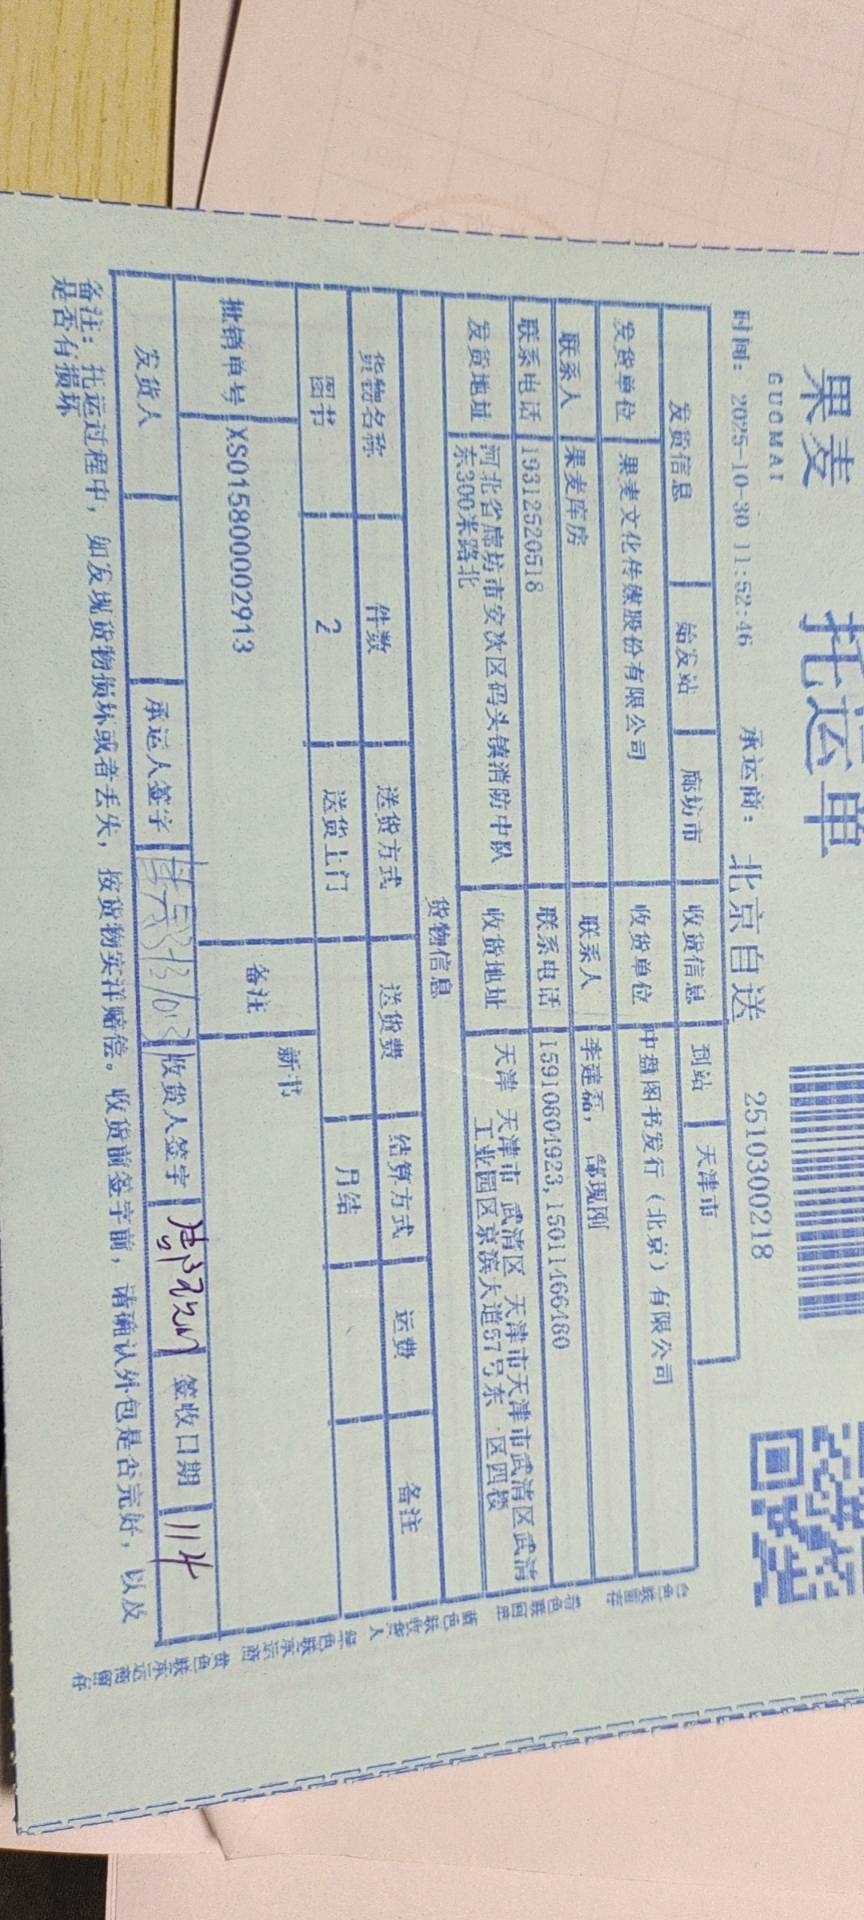 果麦 托运单
GUOMAI
时间：2025-10-30 11:52:46 承运商：北京自送 2510300218
发货信息 始发站 廊坊市 收货信息 到站 天津市
发货单位 果麦文化传媒股份有限公司 收货单位 中盘图书发行（北京）有限公司
联系人 果麦库房 联系人 李建磊，郜现刚
联系电话 19312520518 联系电话 15910804923,15011466480
发货地址 河北省廊坊市安次区码头镇消防中队 收货地址 天津 天津市 武清区 天津市天津市武清区武清
东300米路北 工业园区京滨大道57号东 区四楼
货物信息
货物名称 件数 送货方式 送货费 结算方式 运费 备注
图书 2 送货上门 月结
批销单号 XS015800002913 备注 新书
发货人 承运人签字 收货人签字 签收日期 11.4
备注：托运过程中，如发现货物损坏或者丢失，按货物实洋赔偿。收货前签字前，请确认外包是否完好，以及
是否有损坏
白色联留存 粉色联回用 蓝色联收货人 绿色联承运商 黄色联承运商留存